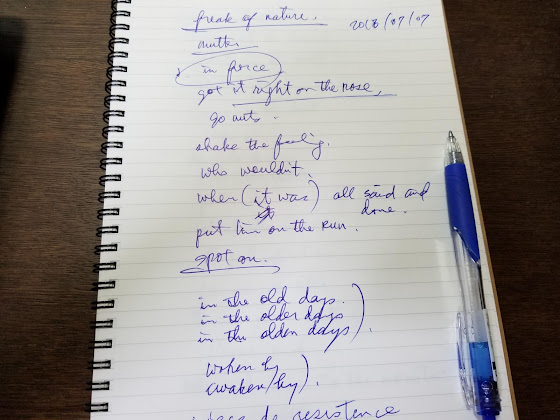 freak of nature.
2018/07/07
in force
got it right on the nose,
go nuts.
shake the feeling.
who wouldn't.
when (it was) all said and
done.
put him on the run.
spot on.
in the old days.
in the older days
in the olden days).
woken by
awaken/by).
de resistence